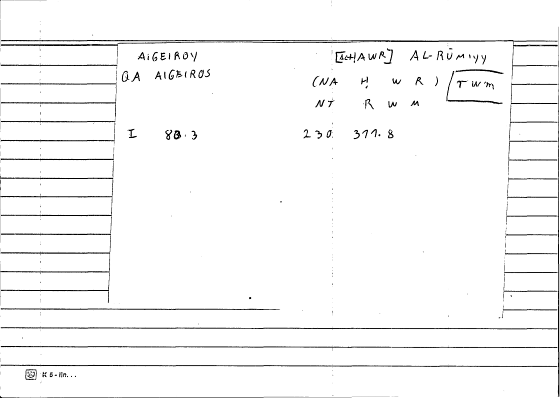 AIGEIROY [ALHAWR] AL-RŪMIYY
QA AIGEIROS (NA Ḥ W R) TWM
NT R W M
I 80.3 230 377.8